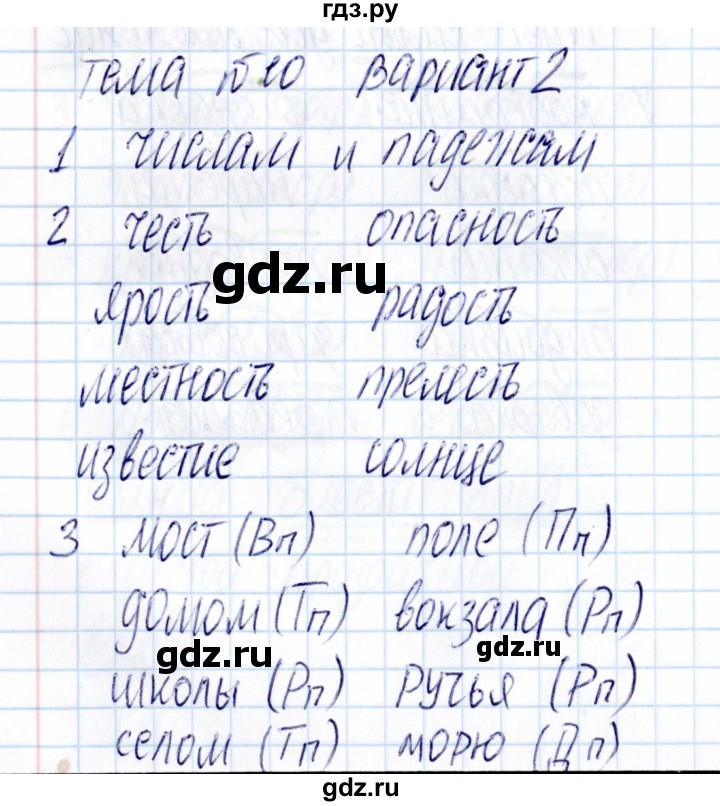 гдз.ру
Тема № 10 Вариант 2
1 числам и падежам
2 честь опасность
gdz.ru
ярость радость
местность прелесть
известие солнце
3 мост (Вп) поле (Пп)
домом (Тп) вокзала (Рп)
gdz.ru gdz.ru
школы (Рп) ручья (Рп)
селом (Тп) морю (Дп)
gdz.ru